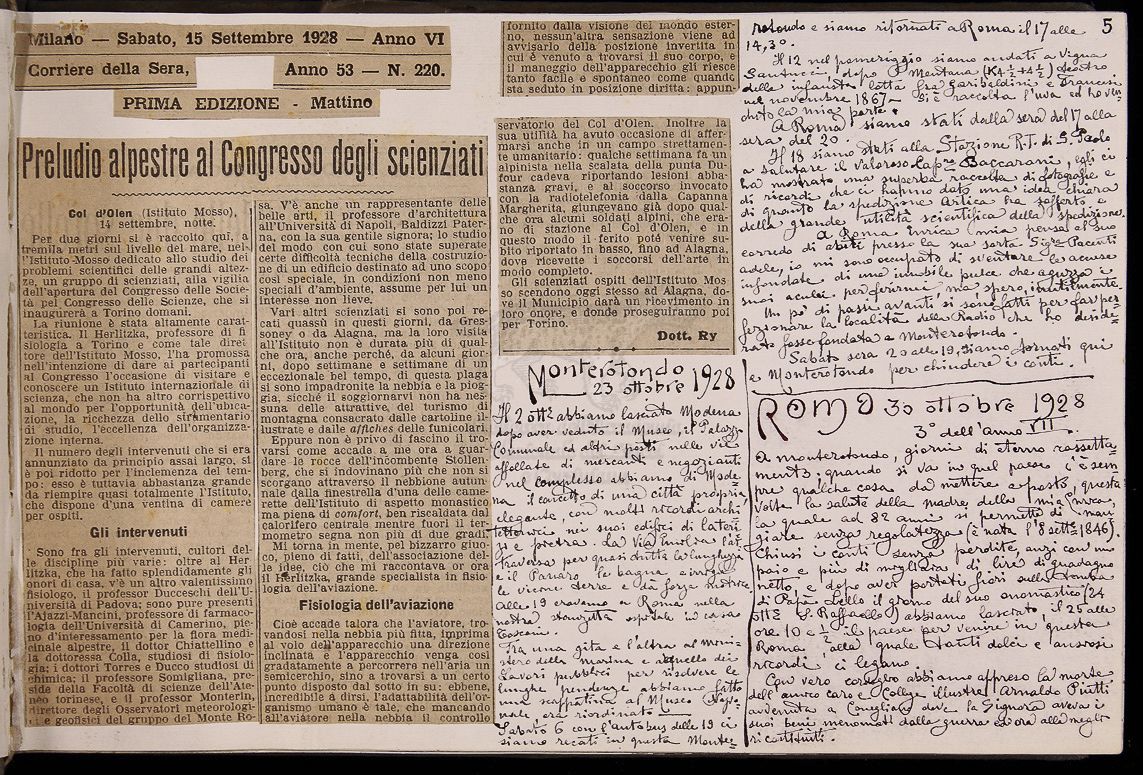 Milano — Sabato, 15 Settembre 1928 — Anno VI
Corriere della Sera, Anno 53 — N. 220.
PRIMA EDIZIONE - Mattino
Preludio alpestre al Congresso degli scienziati
Col d'Olen (Istituto Mosso),
14 settembre, notte.
Per due giorni si è raccolto qui, a
tremila metri sul livello del mare, nel-
l'Istituto Mosso dedicato allo studio dei
problemi scientifici delle grandi altez-
ze, un gruppo di scienziati, alla vigilia
dell'apertura del Congresso delle Socie-
tà pel Congresso delle Scienze, che si
inaugurerà a Torino domani.
La riunione è stata altamente carat-
teristica. Il Herlitzka, professore di fi
siologia a Torino e come tale diret
tore dell'Istituto Mosso, l'ha promossa
nell'intenzione di dare ai partecipanti
al Congresso l'occasione di visitare e
conoscere un Istituto internazionale di
scienza, che non ha altro corrispettivo
al mondo per l'opportunità dell'ubica-
zione, la ricchezza dello strumentario
di studio, l'eccellenza dell'organizza-
zione interna.
Il numero degli intervenuti che si era
annunziato da principio assai largo, si
è poi ridotto per l'inclemenza del tem-
po: esso è tuttavia abbastanza grande
da riempire quasi totalmente l'Istituto,
che dispone d'una ventina di camere
per ospiti.
Gli intervenuti
Sono fra gli intervenuti, cultori del-
le discipline più varie: oltre al Her
litzka, che ha fatto splendidamente gli
onori di casa, v'è un altro valentissimo
fisiologo, il professor Ducceschi dell'U-
niversità di Padova; sono pure presenti
l'Ajazzi-Mancini, professore di farmaco-
logia dell'Università di Camerino, pie-
no d'interessamento per la flora medi-
cinale alpestre, il dottor Chiatellino e
la dottoressa Colla, studiosi di fisiolo-
gia; i dottori Torres e Ducco studiosi di
chimica; il professore Somigliana, pre-
side della Facoltà di scienze dell'Ate-
neo torinese, e il professor Monterin,
direttore degli Osservatori meteorologi-
ci e geofisici del gruppo del Monte Ro-
sa. V'è anche un rappresentante delle
belle arti, il professore d'architettura
all'Università di Napoli, Baldizzi Pater-
na, con la sua gentile signora; lo studio
del modo con cui sono state superate
certe difficoltà tecniche della costruzio-
ne di un edificio destinato ad uno scopo
così speciale, in condizioni non meno
speciali d'ambiente, assume per lui un
interèsse non lieve.
Vari altri scienziati si sono poi re-
cati quassù in questi giorni, da Gres-
soney o da Alagna, ma la loro visita
all'Istituto non è durata più di qual-
che ora, anche perché, da alcuni gior-
ni, dopo settimane e settimane di un
eccezionale bel tempo, di questa plaga
si sono impadronite la nebbia e la piog-
gia, sicché il soggiornarvi non ha nes-
suna delle attrattive, del turismo di
montagna consacrato dalle cartoline il-
lustrate e dalle affiches delle funicolari.
Eppure non è privo di fascino il tro-
varsi come accade a me ora a guar-
dare le rocce dell'incombente Stollen-
berg, che si indovinano più che non si
scorgano attraverso il nebbione autun-
nale dalla finestrella d'una delle came-
rette dell'Istituto di aspetto monastico
ma piena di comfort, ben riscaldata dal
calorifero centrale mentre fuori il ter-
mometro segna non più di due gradi.
Mi torna in mente, pel bizzarro giuo-
co, pieno di fatti, dell'associazione del-
le idee, ciò che mi raccontava or ora
il Herlitzka, grande specialista in fisio-
logia dell'aviazione.
Fisiologia dell'aviazione
Cioè accade talora che l'aviatore, tro-
vandosi nella nebbia più fitta, imprima
al volo dell'apparecchio una direzione
inclinata e l'apparecchio venga così
gradatamente a percorrere nell'aria un
semicerchio, sino a trovarsi a un certo
punto disposto dal sotto in su: ebbene,
incredibile a dirsi, l'adattabilità dell'or-
ganismo umano è tale, che mancando
all'aviatore nella nebbia il controllo
fornito dalla visione del mondo ester-
no, nessun'altra sensazione viene ad
avvisarlo della posizione invertita in
cui è venuto a trovarsi il suo corpo, e
il maneggio dell'apparecchio gli riesce
tanto facile e spontaneo come quando
sta seduto in posizione diritta: appun-
servatorio del Col d'Olen. Inoltre la
sua utilità ha avuto occasione di affer-
marsi anche in un campo strettamen-
te umanitario: qualche settimana fa un
alpinista nella scalata della punta Du-
four cadeva riportando lesioni abba-
stanza gravi, e al soccorso invocato
con la radiotelefonia dalla Capanna
Margherita, giungevano già dopo qual-
che ora alcuni soldati alpini, che era-
no di stazione al Col d'Olen, e in
questo modo il ferito poté venire su-
bito riportato in basso, fino ad Alagna,
dove ricevette i soccorsi dell'arte in
modo completo.
Gli scienziati ospiti dell'Istituto Mos
so scendono oggi stesso ad Alagna, do-
ve il Municipio darà un ricevimento in
loro onore, e donde proseguiranno poi
per Torino.
Dott. Ry
Monterotondo
23 ottobre 1928
Il 2 ott. abbiamo lasciato Modena
dopo aver veduto il Museo, il Palazzo
Comunale ed altri posti nelle vie
affollate di mercanti e negozianti
nel complesso abbiamo di Mode-
na il concetto di una città propria,
elegante, con molti ricordi archi
tettonici nei suoi edifici di lateri
zi e pietra. La Via Emilia l'at-
traversa per quasi tutta la lunghezza
e il Panaro le bagna
le vicine terre e dà forza motrice
alle 19 eravamo a Roma nella
nostra stanzetta ospitale in casa
Toscani.
Tra una gita e l'altra al Mini-
stero della Marina e a quello dei
Lavori pubblici per risolvere le
lunghe pendenze abbiamo fatto
una scappatina al Museo
nale ora riordinato.
Sabato 6 con l'autobus delle 19 ci
siamo recati in questa Monte-
rotondo e siamo ritornati a Roma il 17 alle
14,30.
Il 12 nel pomeriggio siamo andati a Vigna
Santucci, dopo Mentana (K 4½+4½) teatro
della infausta lotta fra garibaldini e francesi
nel novembre 1867— Si è raccolta l'uva ed ho ven-
duto la mia parte.
A Roma siamo stati dalla sera del 17 alla
sera del 20.
Il 18 siamo stati alla Stazione R.T. di S. Paolo
a salutare il valoroso Capno Baccarani, egli ci
ha mostrato una superba raccolta di fotografie e
di ricordi che ci hanno dato una idea chiara
di quanto la spedizione Artica ha sofferto e
della grande utilità scientifica della spedizione.
A Roma Enrica mia pensa al suo
corredo di abiti presso la sua sarta Sigra Pacenti
Adele, io mi sono occupato di sventare le accuse
infondate di una immobile pulce che aguzza i
suoi aculei per ferirmi ma spero, inutilmente.
Un po' di passi avanti si sono fatti per far per-
fezionare la località della Radio che ho deside-
rato fosse fondata a Monterotondo.
Sabato sera 20 alle 19, siamo tornati qui
a Monterotondo per chiudere i conti.
ROMA 30 ottobre 1928
3º dell'anno VII.
A monterotondo, giorni di eterno rassetta-
mento; quando si va in quel paese c'è sem
pre qualche cosa da mettere a posto, questa
volta la salute della madre della mia Cara,
la quale ad 82 anni si permette di man
giare senza regolatezza (è nata l'8 sett. 1846).
Chiusi i conti senza perdite, anzi con un
paio e più di migliara di lire di guadagno
netto, e dopo aver portati fiori sulla tomba
di Papà Lello il giorno del suo onomastico (24
ott. S. Raffaello) abbiamo lasciato, il 25 alle
ore 10 e ½ il paese per venire in questa
Roma alla quale tanti dolci e amorosi
ricordi ci legano.
Con vero cordoglio abbiamo appreso la morte
dell'amico caro e Collega illustre Arnaldo Piutti
avvenuta a Conegliano dove la Signora aveva i
suoi beni menomati dalla guerra ed ora alla meglio
ricostituiti.
5